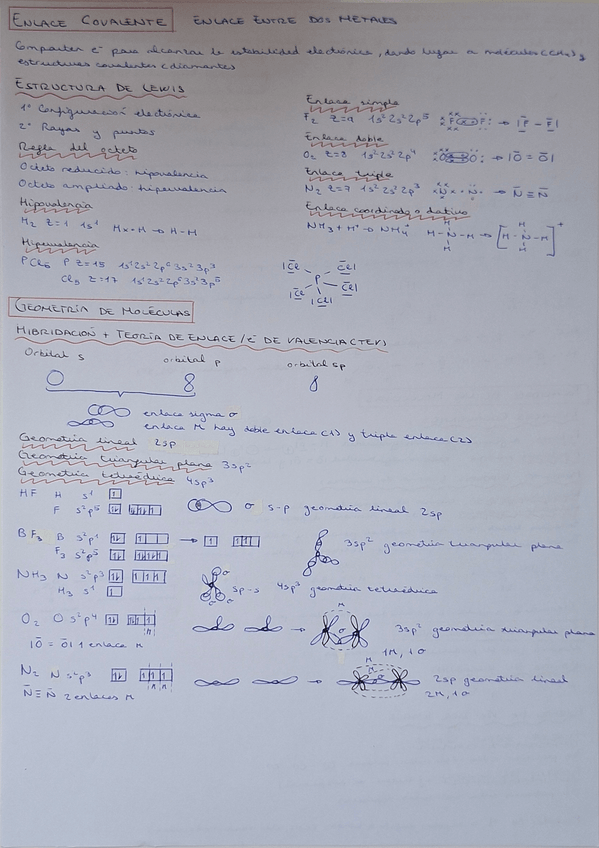 ENLACE COVALENTE ENLACE ENTRE DOS METALES
Comparten e⁻ para alcanzar la estabilidad electrónica, dando lugar a moléculas (CH₄) y
estructuras covalentes (diamante)
ESTRUCTURA DE LEWIS
1º Configuración electrónica
2º Rayas y puntos
Regla del octeto
Octeto reducido: hipovalencia
Octeto ampliado: hipervalencia
Hipovalencia
H₂ Z=1 1s¹ Hx·H → H-H
Hipervalencia
PCl₅ P Z=15 1s²2s²2p⁶3s²3p³
Cl₅ Z=17 1s²2s²2p⁶3s²3p⁵
Enlace simple
F₂ Z=9 1s²2s²2p⁵ F F → |F̄ - F̄|
Enlace doble
O₂ Z=8 1s²2s²2p⁴ O O → |Ō = Ō|
Enlace triple
N₂ Z=7 1s²2s²2p³ N N → N̄ ≡ N̄
Enlace coordinado o dativo
NH₃ + H⁺ → NH₄⁺
H
H-N-H →
H
H
[H-N-H]⁺
H
|C̄l C̄l|
P
|C̄l C̄l|
|C̄l|
GEOMETRÍA DE MOLÉCULAS
HIBRIDACIÓN + TEORÍA DE ENLACE/e⁻ DE VALENCIA (TEV)
Orbital s orbital p orbital sp
enlace sigma σ
enlace π hay doble enlace (1) y triple enlace (2)
Geometría lineal 2sp
Geometría triangular plana 3sp²
Geometría tetraédrica 4sp³
HF H s¹
F s²p⁵ σ s-p geometría lineal 2sp
BF₃ B s²p¹ → 3sp² geometría triangular plana
F₃ s²p⁵
NH₃ N s²p³ σ σ σ sp-s 4sp³ geometría tetraédrica
H₃ s¹
O₂ O s²p⁴ π → π σ 3sp² geometría triangular plana
|Ō = Ō| 1 enlace π 1π, 1σ
N₂ N s²p³ π π → π π σ 2sp geometría lineal
N̄ ≡ N̄ 2 enlaces π 2π, 1σ